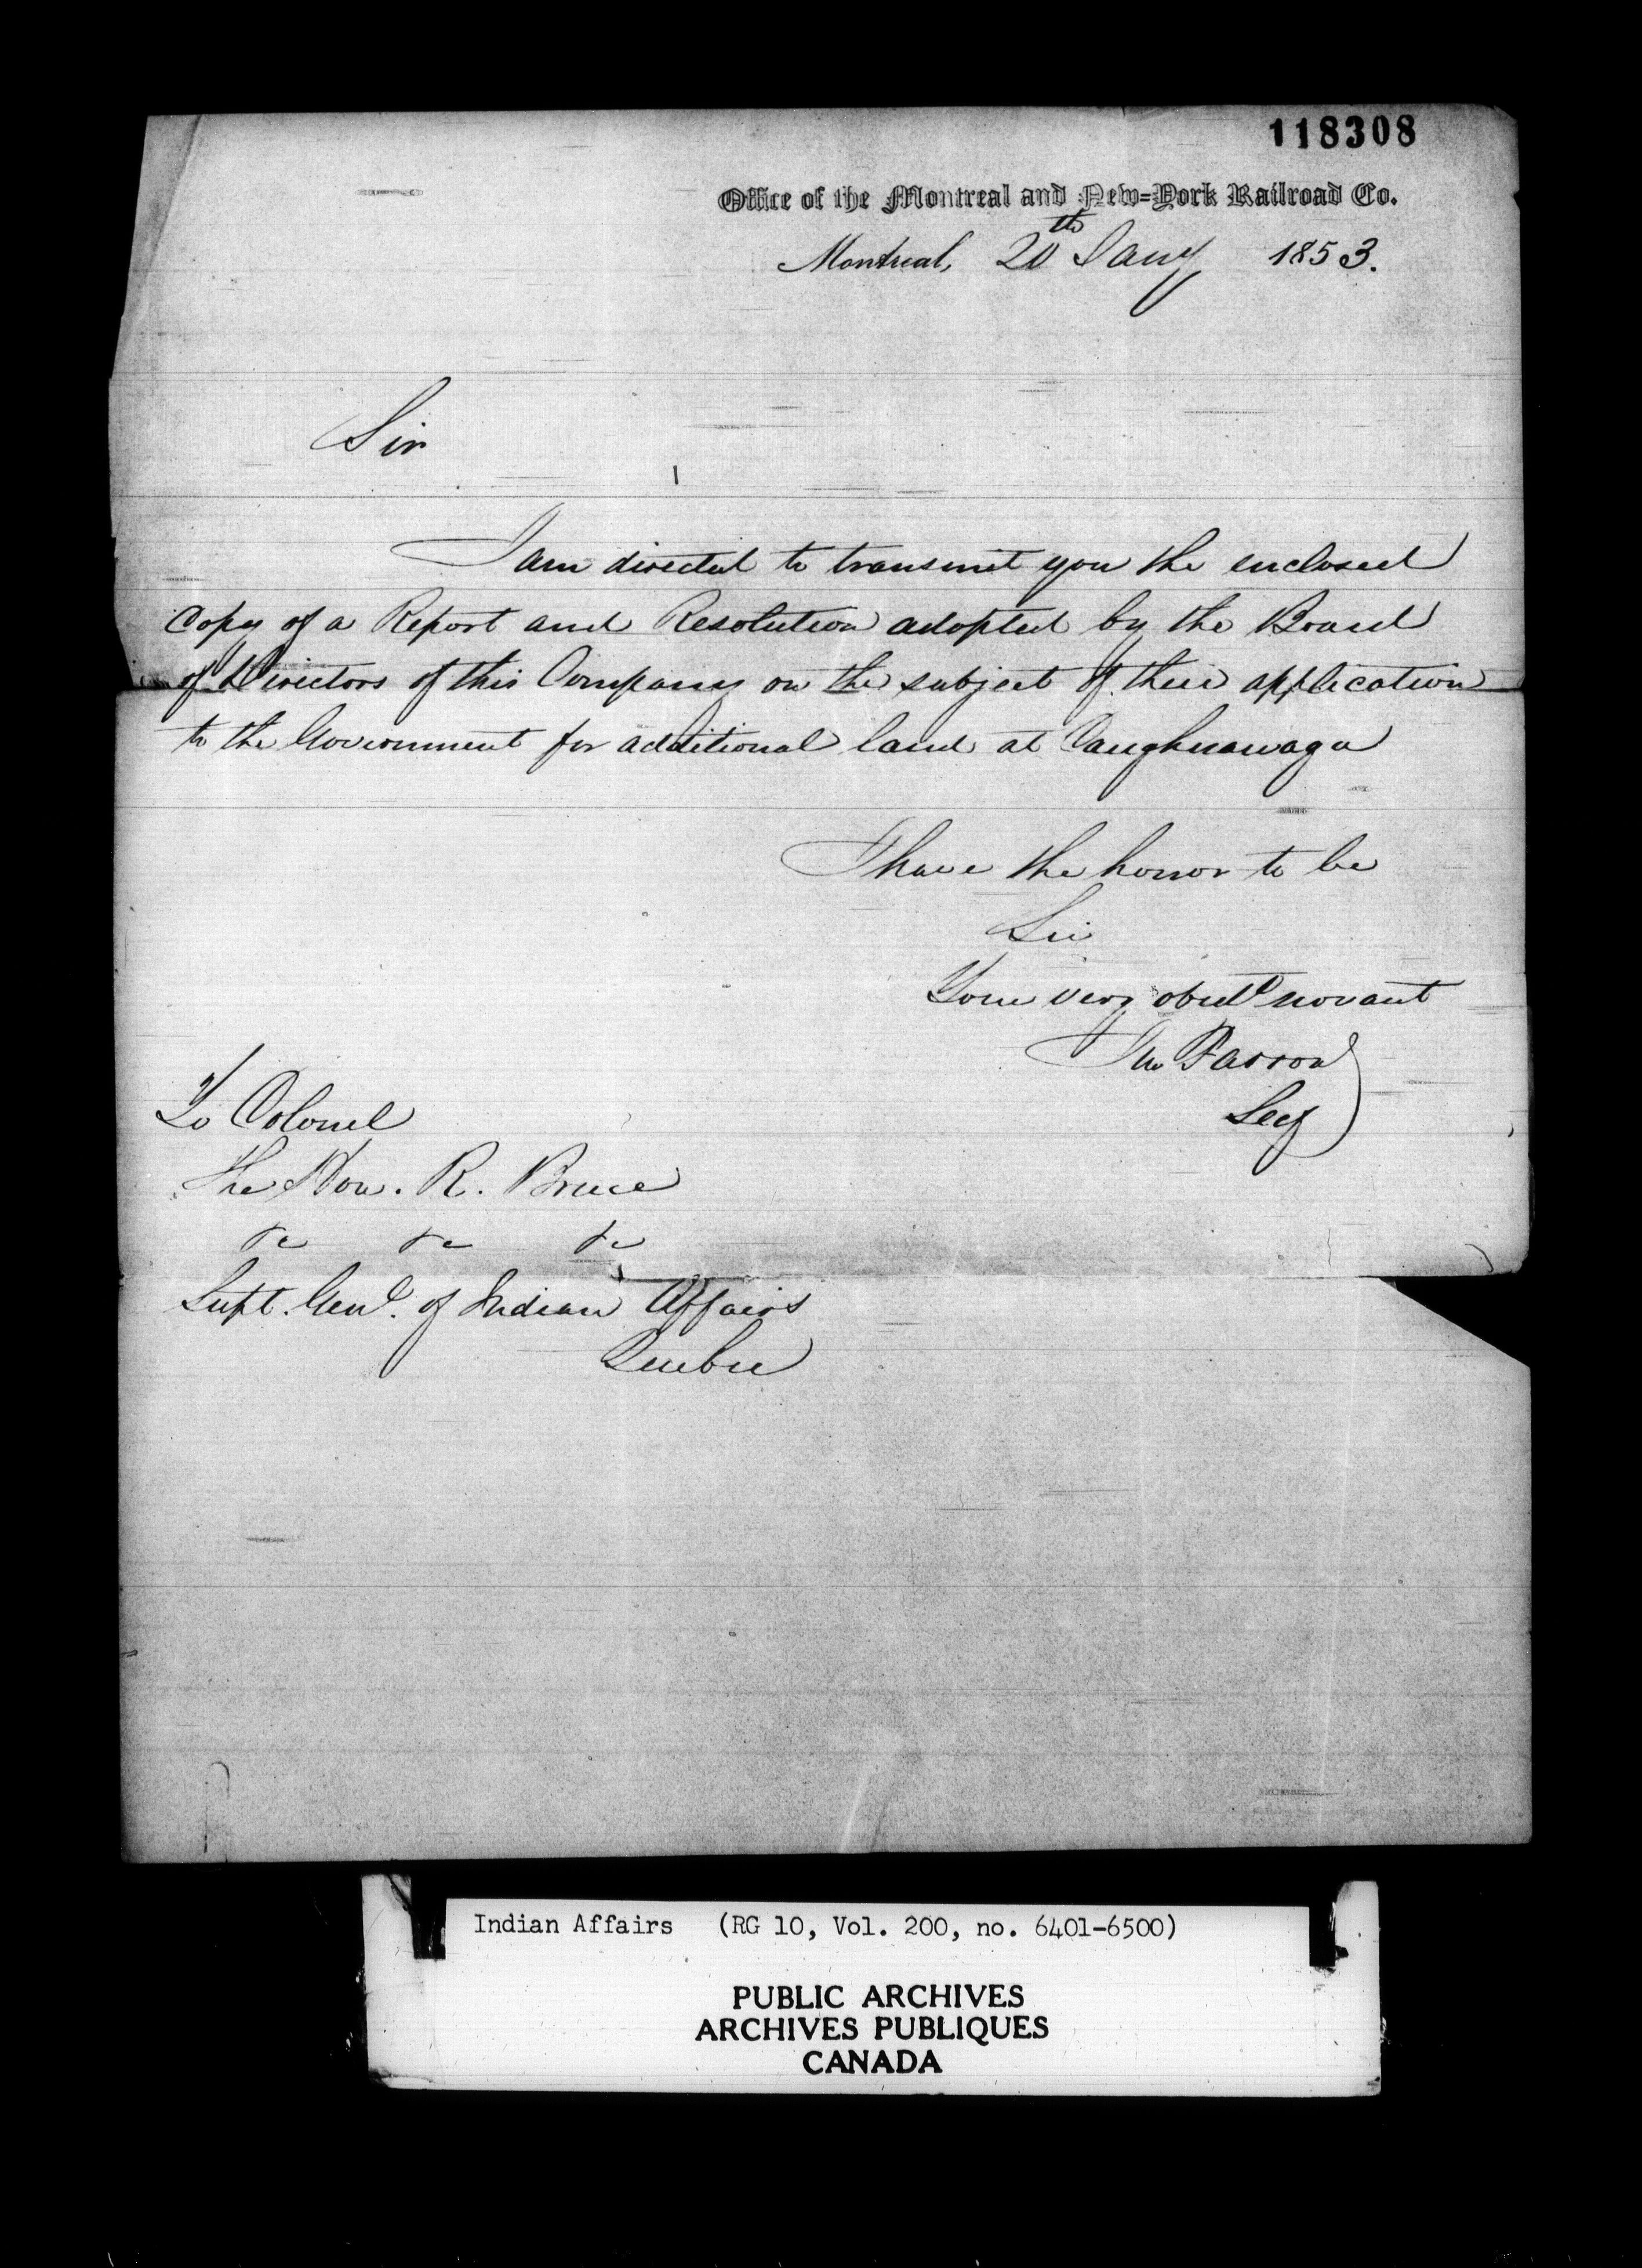 118308
Office of the Montreal and New=York Railroad Co.
Montreal, 20th Jany 1853.
Sir
I am directed to transmit you the enclosed
Copy of a Report and Resolution adopted by the Board
of Directors of this Company on the subject of their application
to the Government for additional land at Caughnawaga
I have the honor to be
Sir
Your very obedt servant
Jno Farrow
Secy
To Colonel
The Hon. R. Bruce
&c &c &c
Supt. Genl. of Indian Affairs
Quebec
Indian Affairs (RG 10, Vol. 200, no. 6401-6500)
PUBLIC ARCHIVES
ARCHIVES PUBLIQUES
CANADA